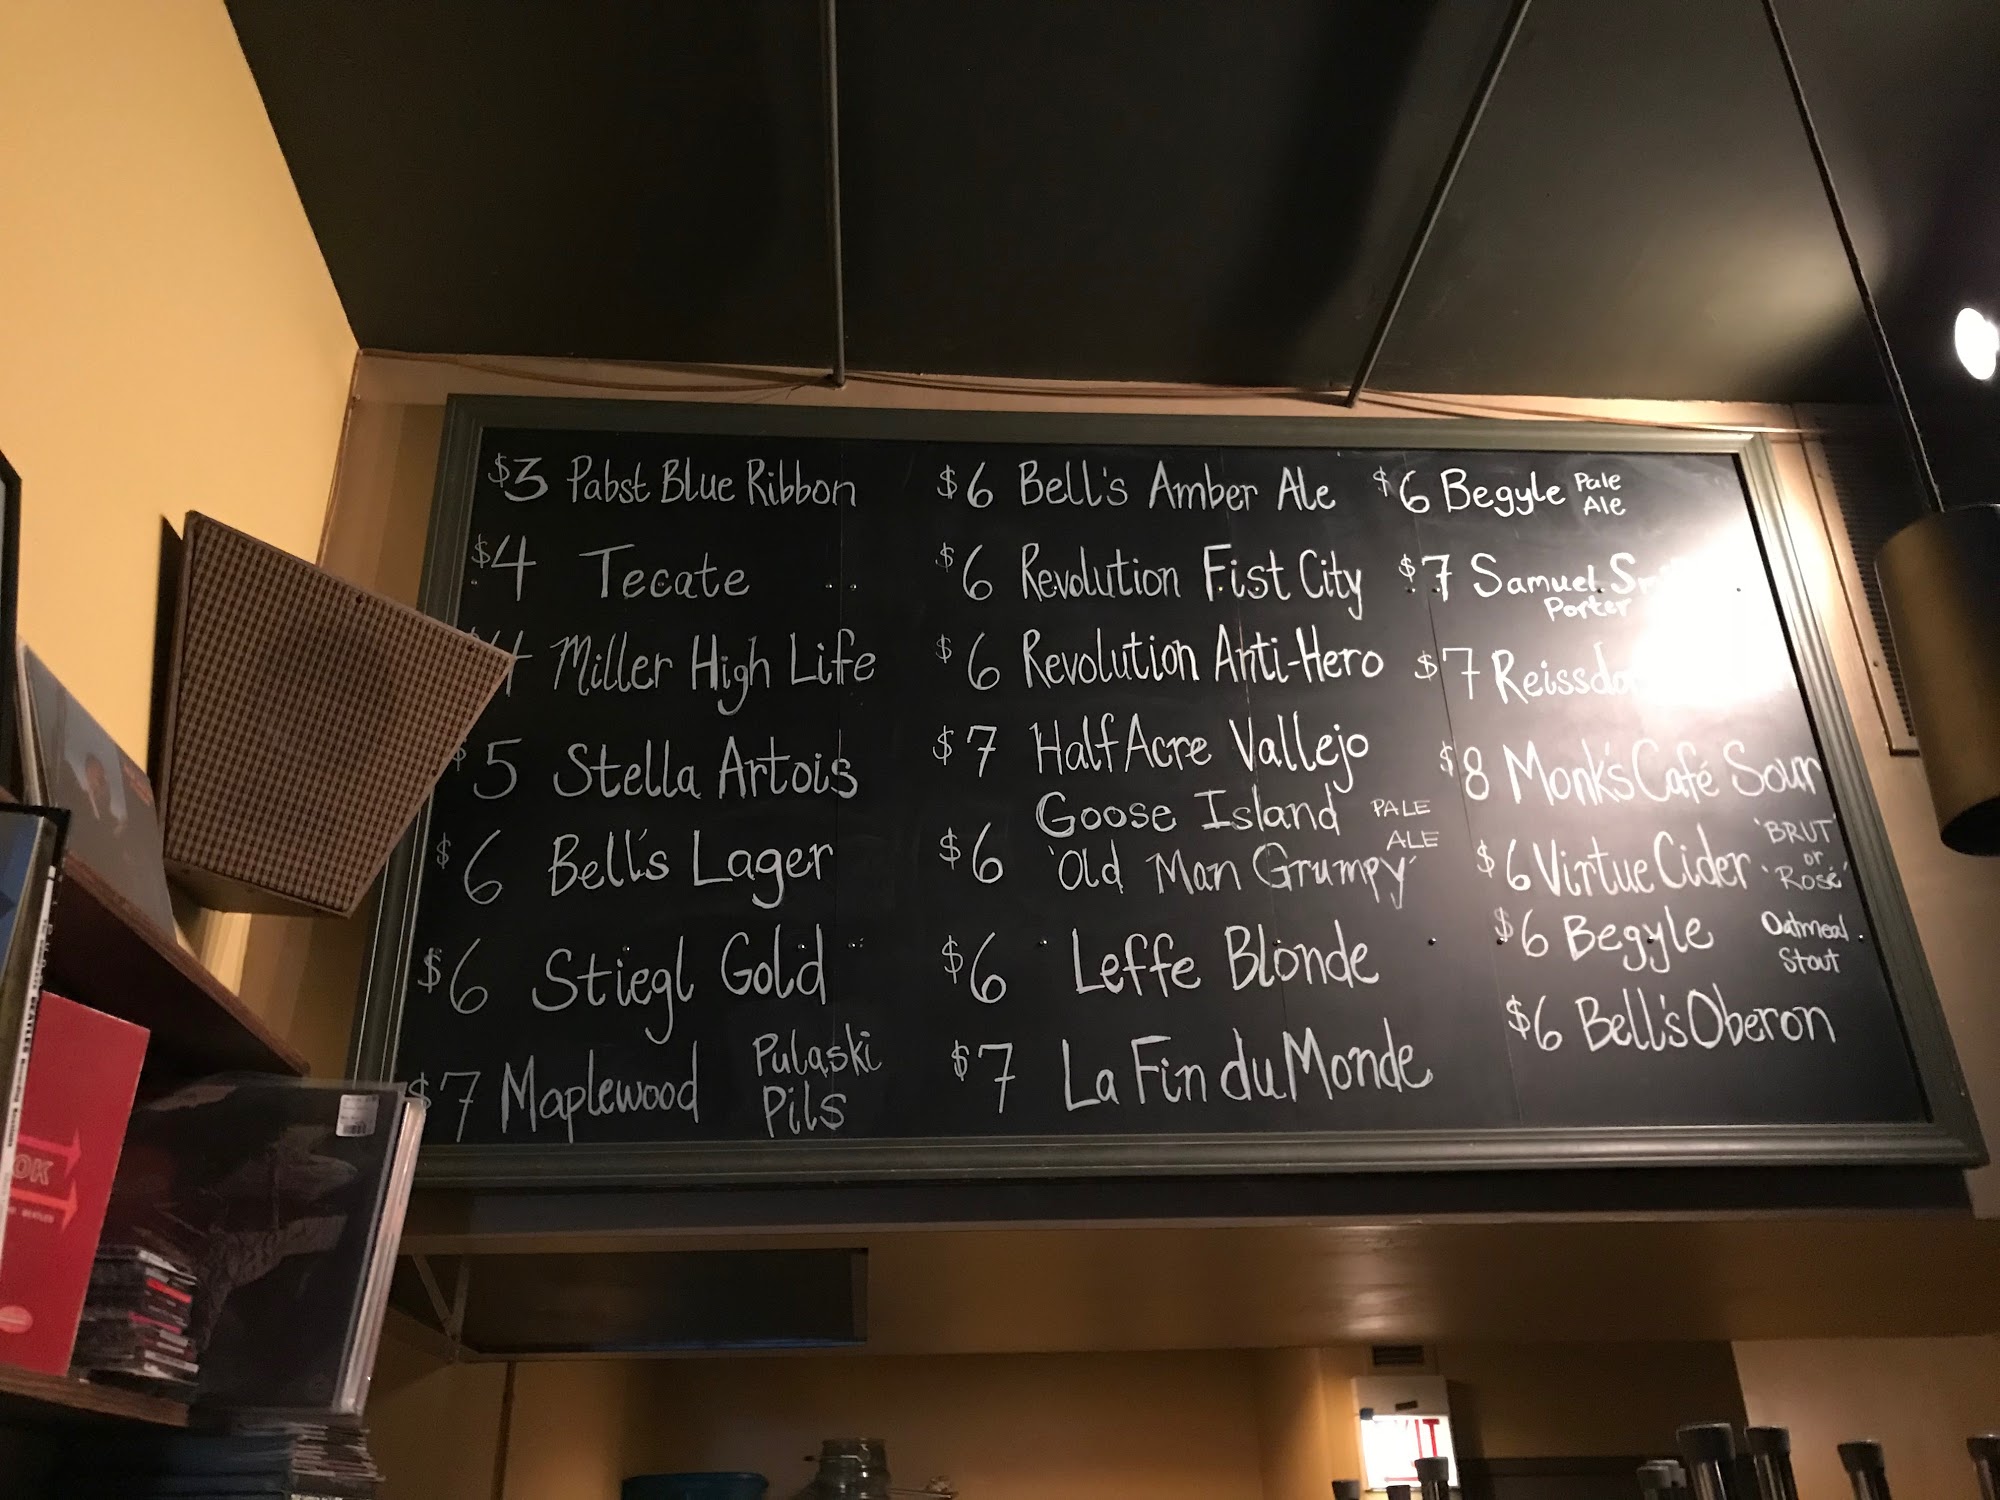 $3 Pabst Blue Ribbon
$4 Tecate
Miller High Life
$5 Stella Artois
$6 Bell's Lager
$6 Stiegl Gold
$7 Maplewood Pulaski
Pils
$6 Bell's Amber Ale
$6 Revolution Fist City
$6 Revolution Anti-Hero
$7 Half Acre Vallejo
$6 Goose Island PALE
ALE
'Old Man Grumpy'
$6 Leffe Blonde
$7 La Fin du Monde
$6 Begyle Pale
Ale
$7 Samuel
Porter
$7
$8 Monk's Café Sour
$6 Virtue Cider 'BRUT'
or
'Rosé'
$6 Begyle Oatmeal
Stout
$6 Bell's Oberon
OK